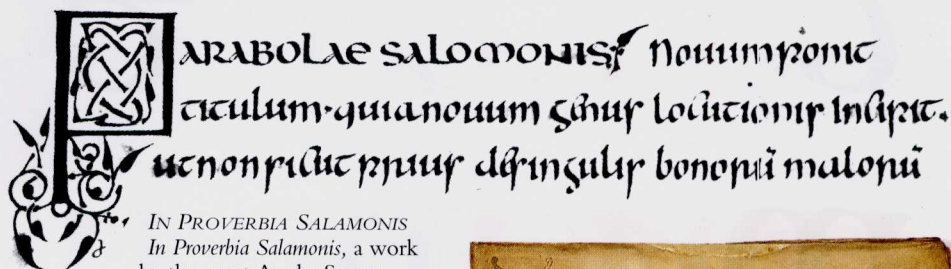 PARABOLAE SALOMONIS Nouum ponit
titulum · quia nouum genus locutionis incipit.
ut non sicut prius de singulis bonorū malorū
IN PROVERBIA SALAMONIS
In Proverbia Salamonis, a work